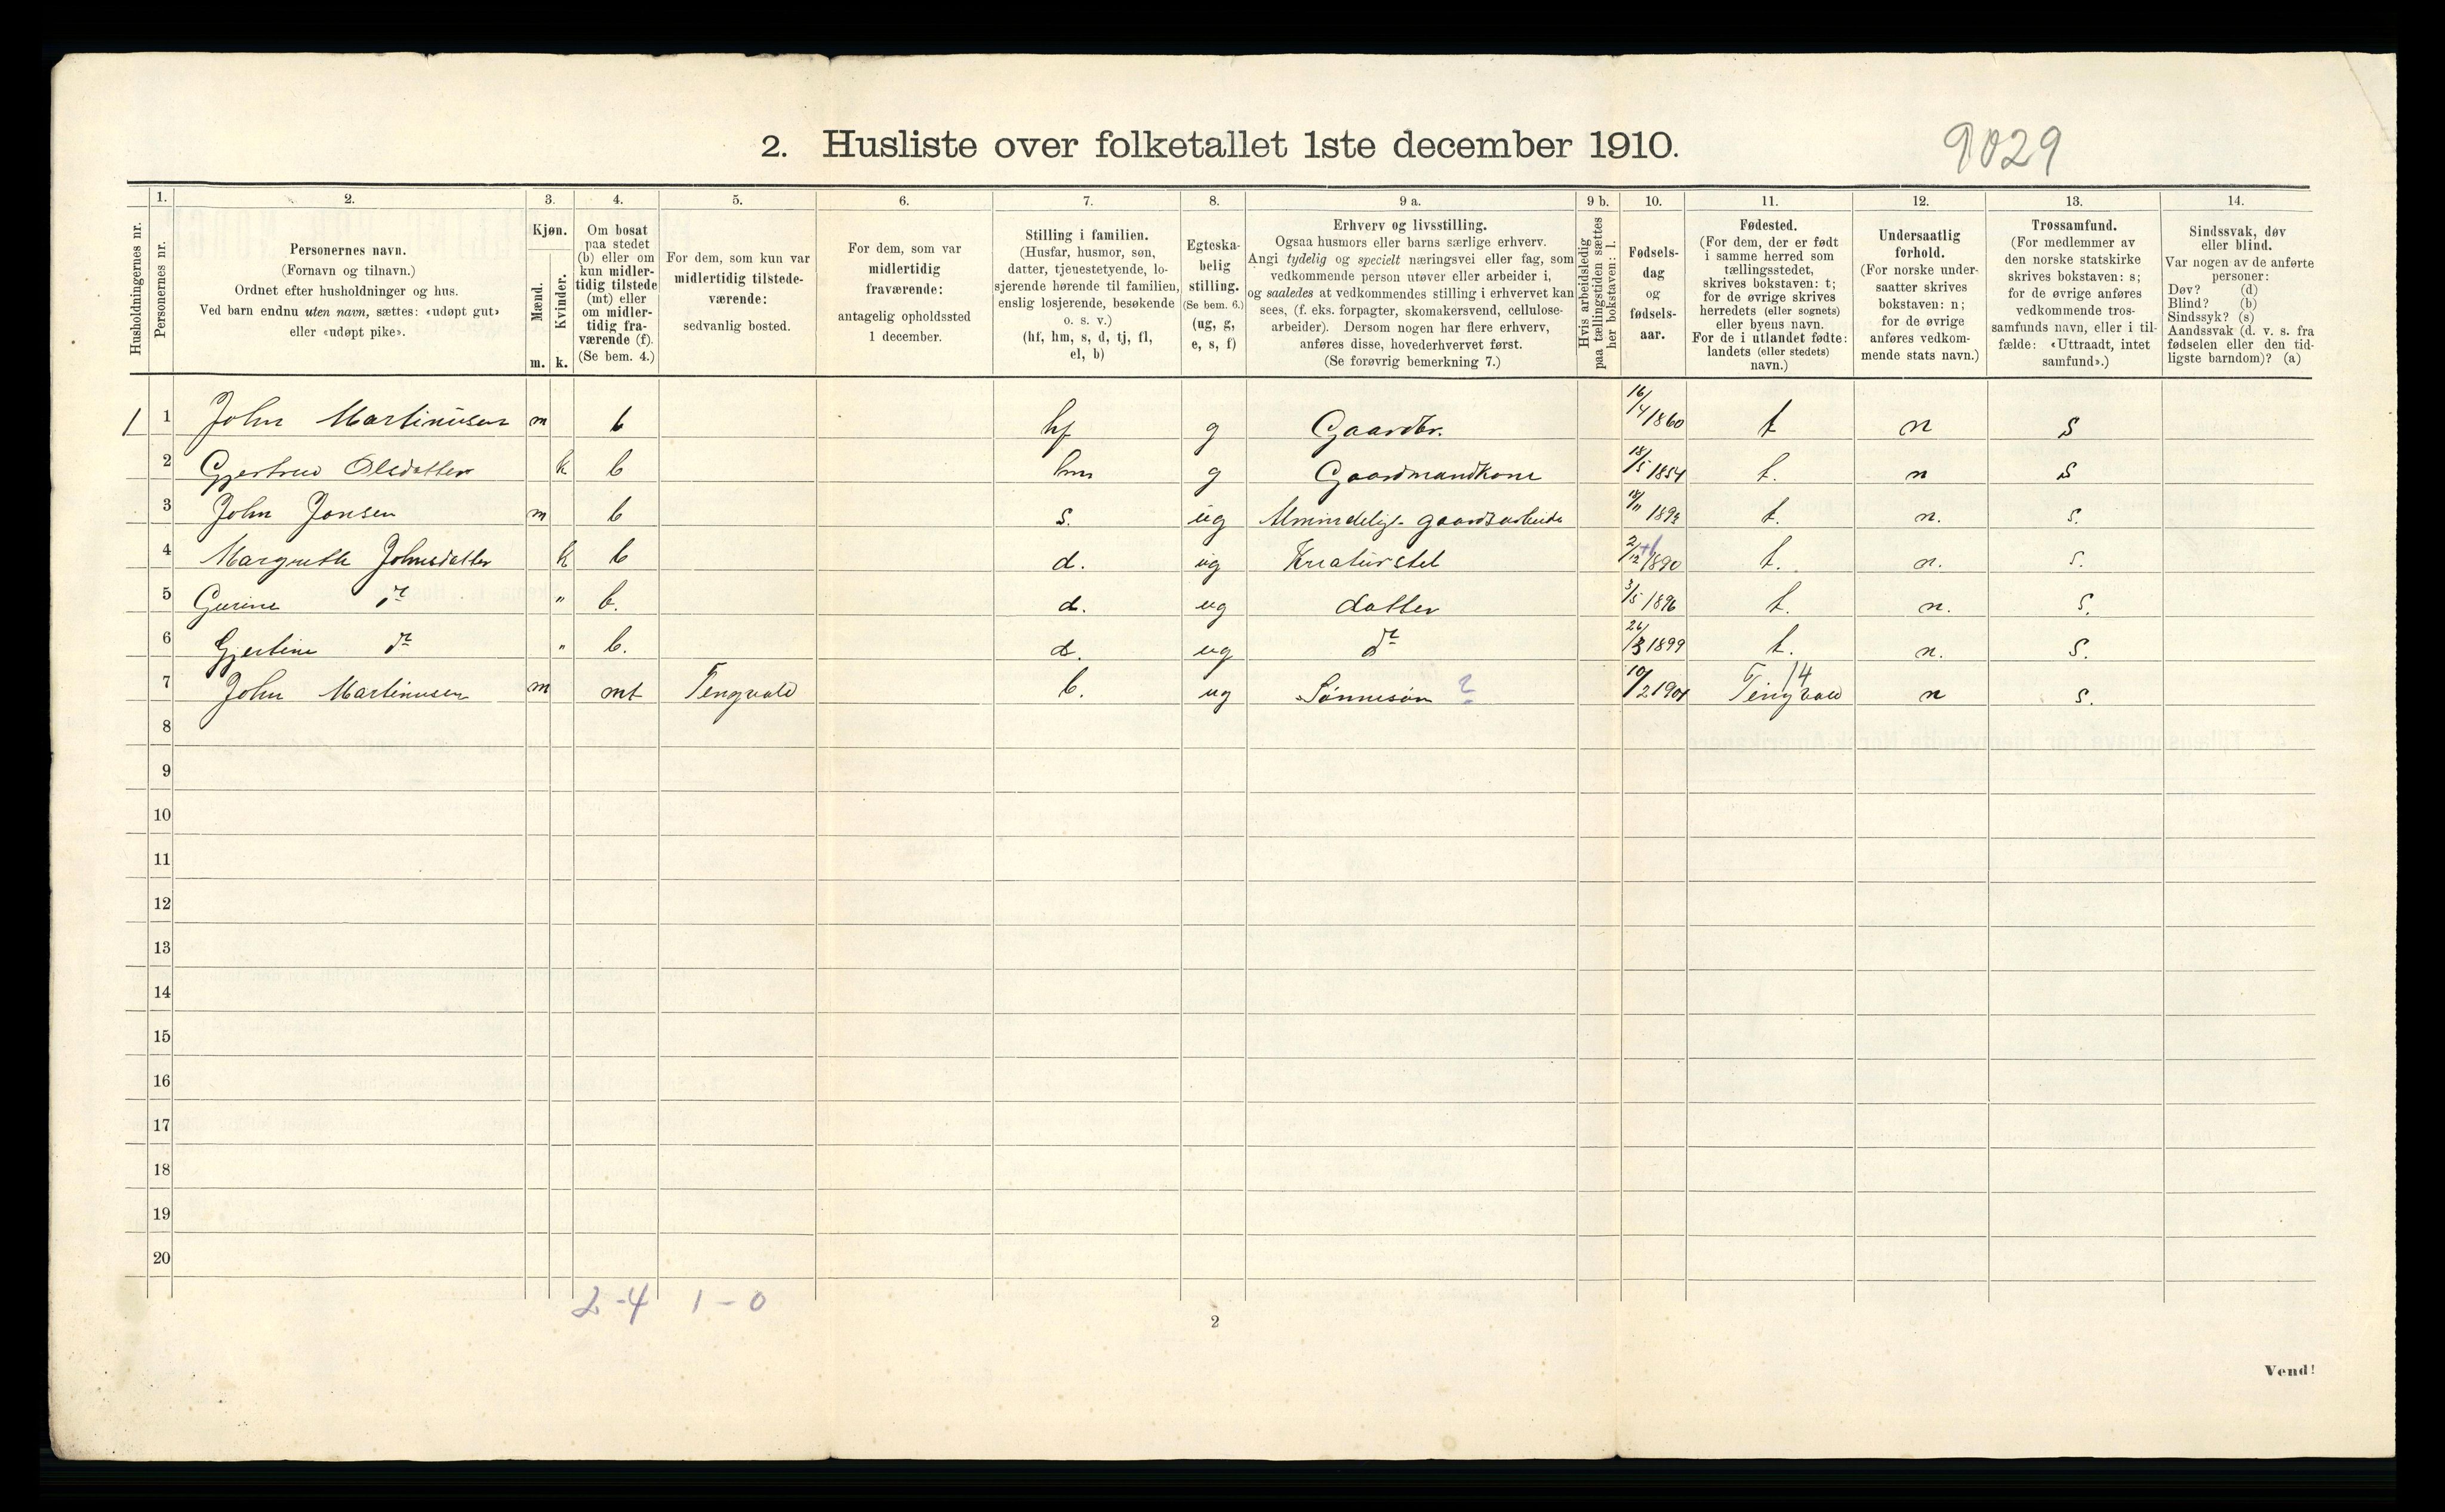 2. Husliste over folketallet 1ste december 1910.
9029
Husholdningernes nr.
1.
Personernes nr.
2.
Personernes navn.
(Fornavn og tilnavn.)
Ordnet efter husholdninger og hus.
Ved barn endnu uten navn, sættes: «udøpt gut»
eller «udøpt pike».
3.
Kjøn.
Mænd.
Kvinder.
m. k.
4.
Om bosat
paa stedet
(b) eller om
kun midler-
tidig tilstede
(mt) eller
om midler-
tidig fra-
værende (f).
(Se bem. 4.)
5.
For dem, som kun var
midlertidig tilstede-
værende:
sedvanlig bosted.
6.
For dem, som var
midlertidig
fraværende:
antagelig opholdssted
1 december.
7.
Stilling i familien.
(Husfar, husmor, søn,
datter, tjenestetyende, lo-
sjerende hørende til familien,
enslig losjerende, besøkende
o. s. v.)
(hf, hm, s, d, tj, fl,
el, b)
8.
Egteska-
belig
stilling.
(Se bem. 6.)
(ug, g,
e, s, f)
9 a.
Erhverv og livsstilling.
Ogsaa husmors eller barns særlige erhverv.
Angi tydelig og specielt næringsvei eller fag, som
vedkommende person utøver eller arbeider i,
og saaledes at vedkommendes stilling i erhvervet kan
sees, (f. eks. forpagter, skomakersvend, cellulose-
arbeider). Dersom nogen har flere erhverv,
anføres disse, hovederhvervet først.
(Se forøvrig bemerkning 7.)
9 b.
Hvis arbeidsledig
paa tællingstiden sættes
her bokstaven: l.
10.
Fødsels-
dag
og
fødsels-
aar.
11.
Fødested.
(For dem, der er født
i samme herred som
tællingsstedet,
skrives bokstaven: t;
for de øvrige skrives
herredets (eller sognets)
eller byens navn.
For de i utlandet fødte:
landets (eller stedets)
navn.)
12.
Undersaatlig
forhold.
(For norske under-
saatter skrives
bokstaven: n;
for de øvrige
anføres vedkom-
mende stats navn.)
13.
Trossamfund.
(For medlemmer av
den norske statskirke
skrives bokstaven: s;
for de øvrige anføres
vedkommende tros-
samfunds navn, eller i til-
fælde: «Uttraadt, intet
samfund».)
14.
Sindssvak, døv
eller blind.
Var nogen av de anførte
personer:
Døv? (d)
Blind? (b)
Sindssyk? (s)
Aandssvak (d. v. s. fra
fødselen eller den tid-
ligste barndom)? (a)
1 1 John Martinusen m b hf g Gaardbr. 16/4 1860 t n s
2 Gjertrud Olsdatter k b hm g Gaardmandkone 18/5 1854 t. n s
3 John Jonsen m b s. ug Almindelig gaardsarbeide 18/11 t. n. s.
4 Margrethe Johnsdatter k b d. ug Kreaturstel 2/12 1890 t. n. s.
5 Gurine do " b. d. ug datter 3/5 1896 t. n. s.
6 Gjertine do " b. d. ug do 26/3 1899 t. n. s.
7 John Martinusen m mt Tingvold b. ug Sønnesøn ? 10/2 1901 Tingvold 14 n s.
8
9
10
11
12
13
14
15
16
17
18
19
20
2-4 1-0
2
Vend!